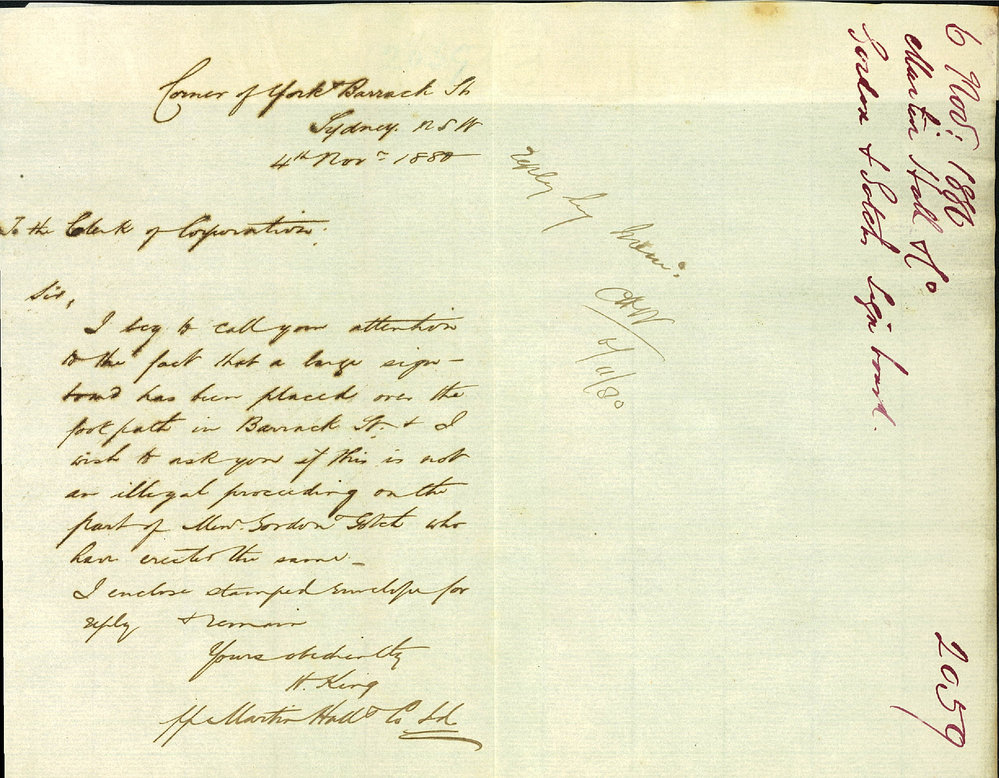 Corner of York & Barrack St
Sydney. N S W
4th Novr 1880
To the Clerk of Corporation.
Sir,
I beg to call your attention
to the fact that a large sign-
board has been placed over the
footpath in Barrack St. & I
wish to ask you if this is not
an illegal proceeding on the
part of Messrs. Gordon & Gotch who
have erected the same -
I enclose stamped envelope for
reply & remain
Yours obediently
H. King
pp Martin Hall & Co Ld
reply by Memo:
CHW
6/11/80
6 Nov: 1880
Martin Hall & Co
Gordon & Gotch Sign board.
2059